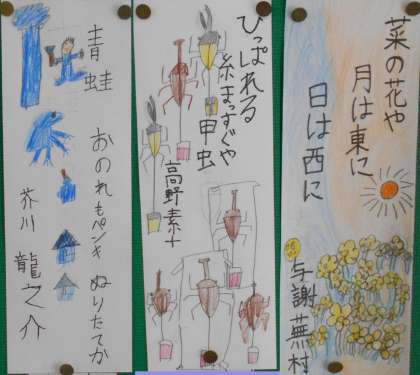 菜の花や
月は東に
日は西に
与謝蕪村
ひっぱれる
糸まっすぐや
甲虫
高野素十
青蛙 おのれもペンキ ぬりたてか
芥川 龍之介